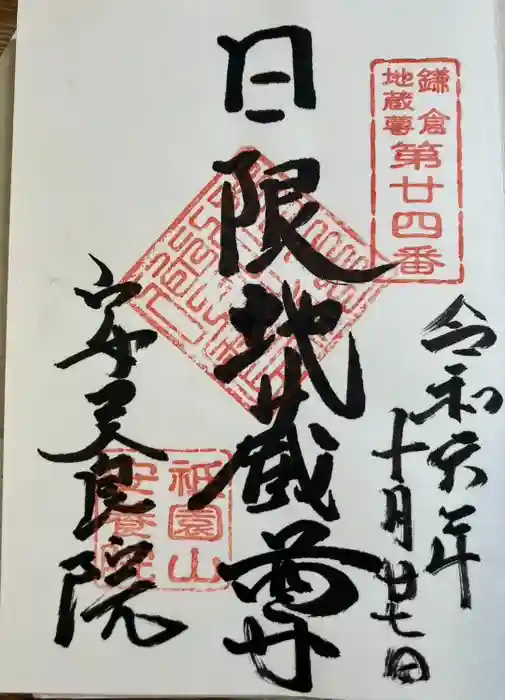 鎌倉
地蔵尊
第廿四番
令和六年
十月廿七日
日限地蔵尊
祇園山
安養院
安養院